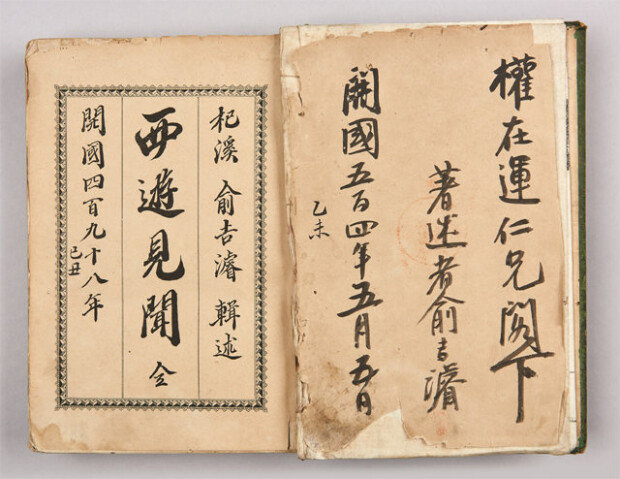 權在運仁兄閣下
著述者俞吉濬
開國五百四年五月五日
乙未
杞溪 俞吉濬 輯述
西遊見聞 全
開國四百九十八年
己丑